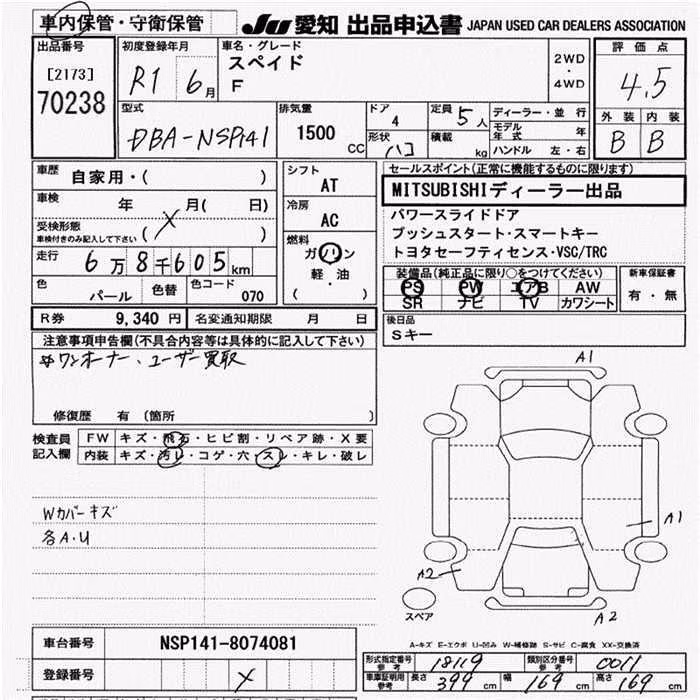 車内保管・守衛保管
JU 愛知 出品申込書 JAPAN USED CAR DEALERS ASSOCIATION
出品番号
[2173]
70238
初度登録年月
R1 6月
車名・グレード
スペイド
F
2WD
・
4WD
評価点
4.5
外装 内装
B B
型式
DBA-NSP141
排気量
1500 CC
ドア
4
形状
ハコ
定員 5人
積載 kg
ディーラー・並行
モデル年式 年
ハンドル 左・右
車歴
自家用・( )
車検 年 月( 日)
受検形態
車検付きのみ記入して下さい ( )
走行 6万8千605km
色 パール 色替 色コード 070
シフト
AT
冷房
AC
燃料
ガソリン
軽・油
( )
セールスポイント(正常に機能するものに限ります)
MITSUBISHIディーラー出品
パワースライドドア
プッシュスタート・スマートキー
トヨタセーフティセンス・VSC/TRC
装備品(純正品に限り○をつけてください)
PS PW エアB AW
SR ナビ TV カワシート
新車保証書
有・無
R券 9,340円 名変通知期限 月 日
後日品
Sキー
注意事項申告欄(不具合内容等は具体的に記入して下さい)
ワンオーナー、ユーザー買取
修復歴 有 (箇所 )
検査員記入欄
FW キズ・飛石・ヒビ割・リペア跡・X要
内装 キズ・汚レ・コゲ・穴・スレ・キレ・破レ
Wカバーキズ
各A・U
A1
A1
A2
A2
スペア
A-キズ E-エクボ U-凹み W-補修跡 S-サビ C-腐食 XX-交換済
車台番号 NSP141-8074081
登録番号
形式指定番号 参考 18119 類別区分番号 参考 0011
車庫証明用 参考 長さ 399 cm 幅 169 cm 高さ 169 cm